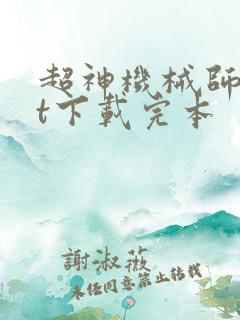 超神機械師
t下載完本
謝淑薇
未经同意禁止转载